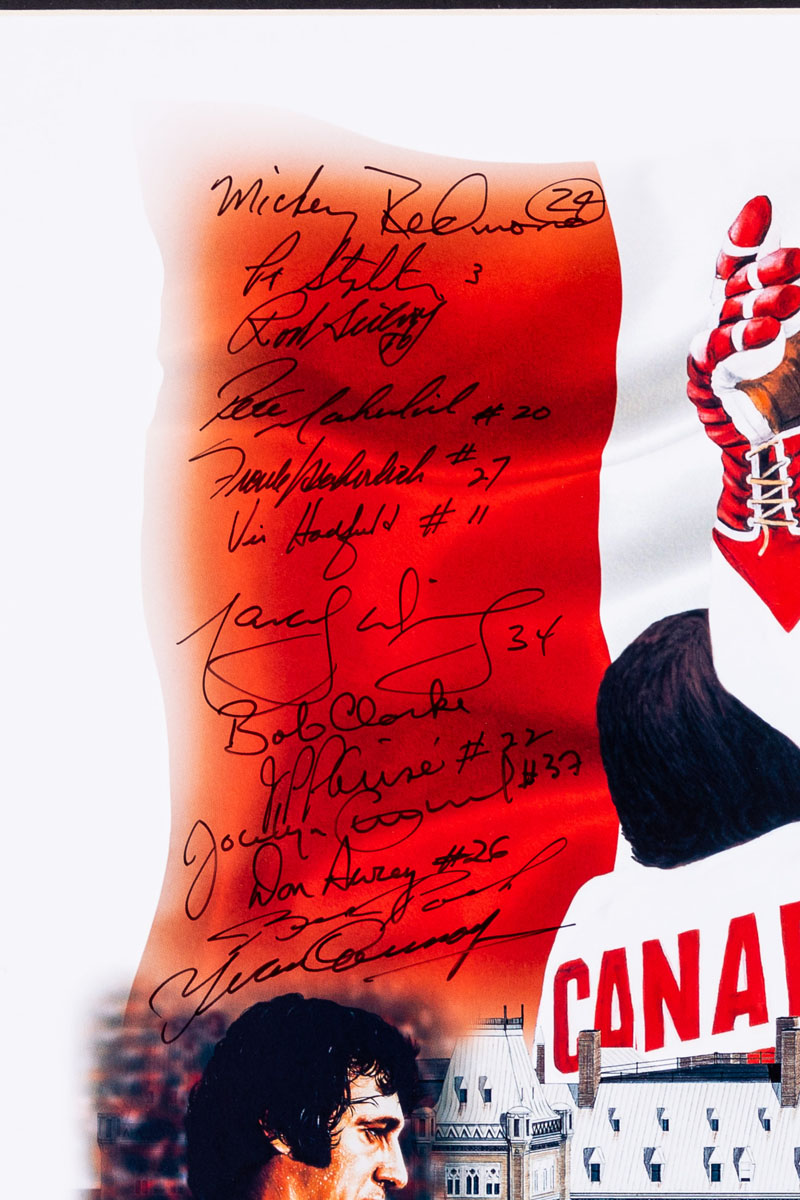 Mickey Redmond 24
Pat Stapleton 3
Rod Seiling 16
Pete Mahovlich #20
Frank Mahovlich #27
Vic Hadfield #11
34
Bob Clarke
JP Parisé #22
Jocelyn Guevremont #37
Don Awrey #26
Brad Park
Yvan Cournoyer
CANA